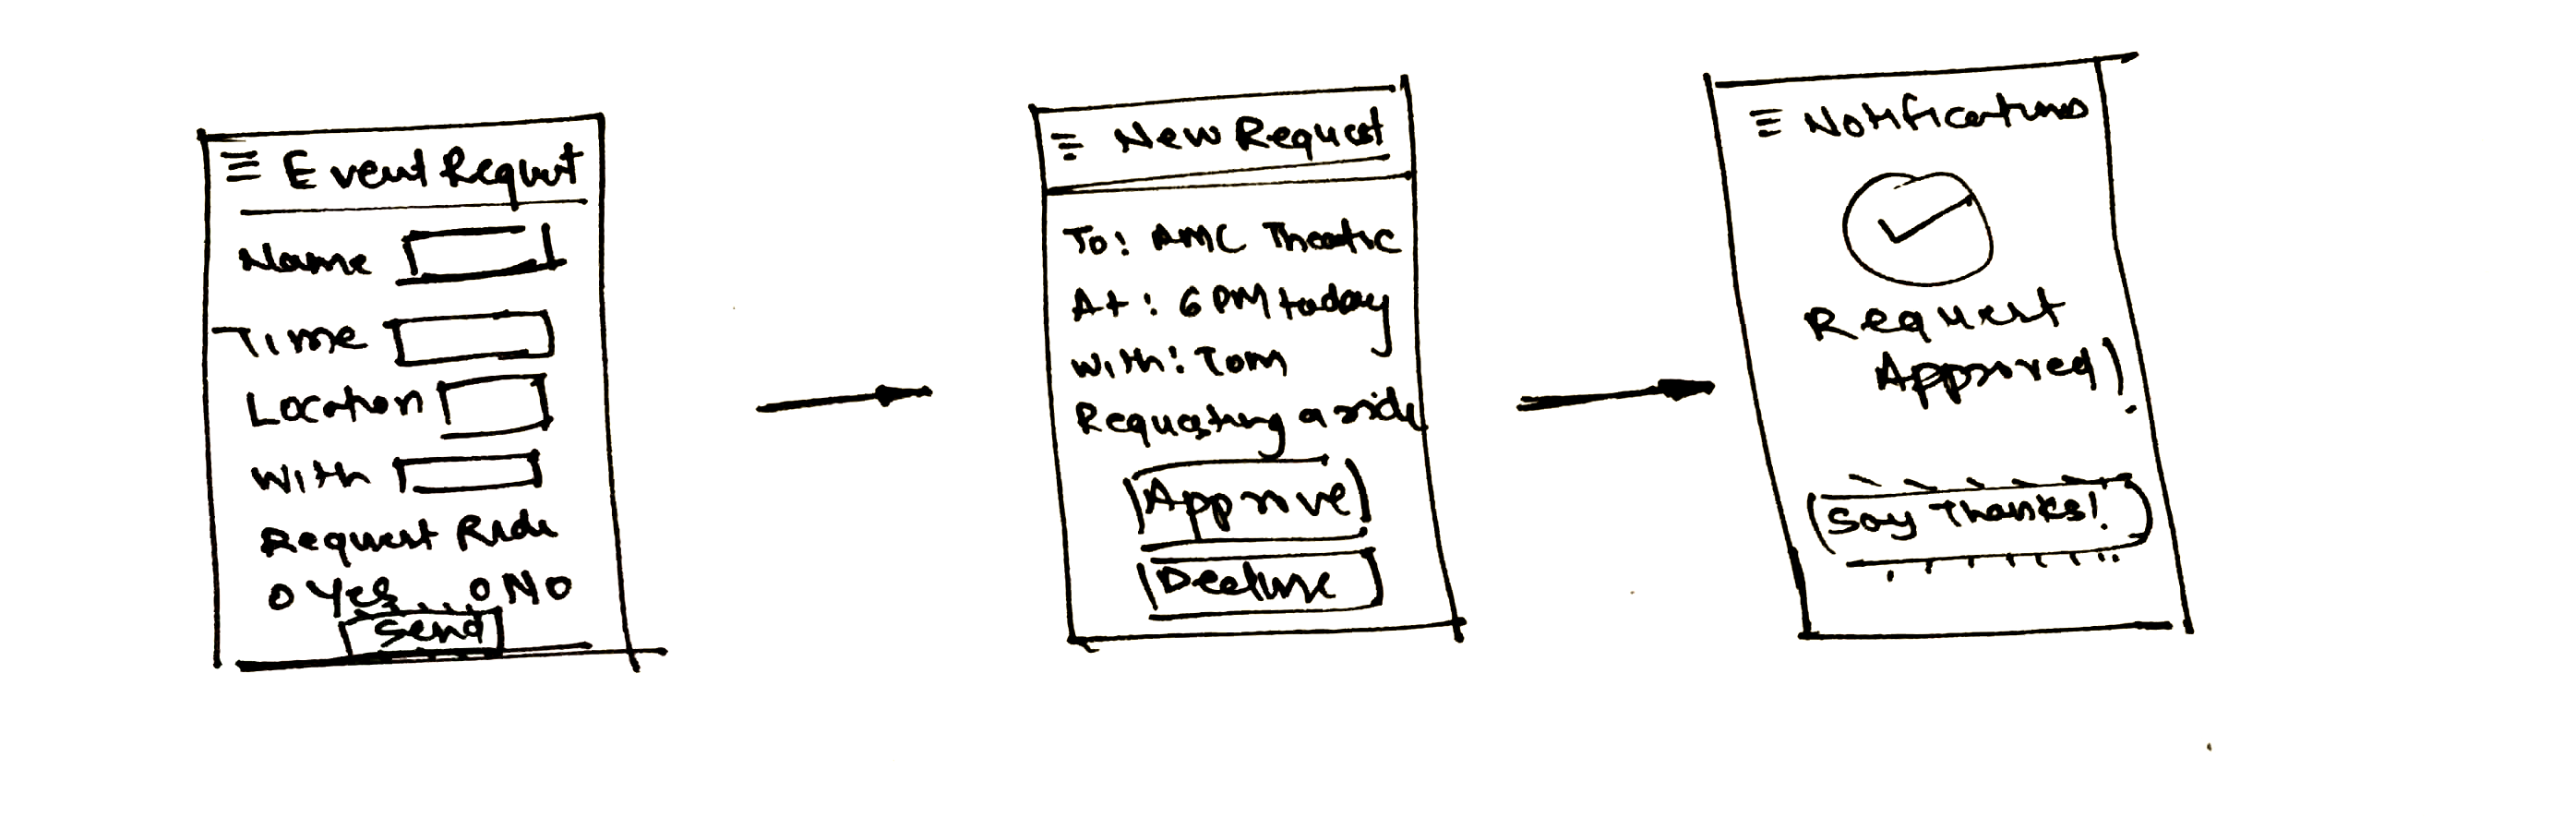 Event Request
Name
Time
Location
With
Request Ride
Yes No
Send
New Request
To: AMC Theatre
At: 6 PM today
With: Tom
Requesting a ride
Approve
Decline
Notifications
Request
Approved!
Say Thanks!